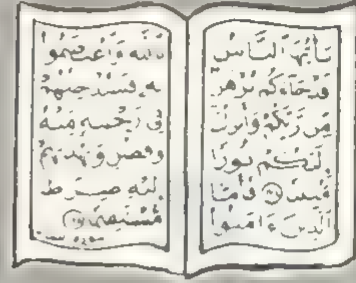 يَأَيُّهَا النَّاسُ
قَدْ جَاءَكُم بُرْهَنٌ
مِّن رَّبِّكُمْ وَأَنزَلْنَا
إِلَيْكُمْ نُورًا
مُّبِينًا ۝ فَأَمَّا
الَّذِينَ ءَامَنُوا
بِاللَّهِ وَاعْتَصَمُوا
بِهِ فَسَيُدْخِلُهُمْ
فِي رَحْمَةٍ مِّنْهُ
وَفَضْلٍ وَيَهْدِيهِمْ
إِلَيْهِ صِرَطًا
مُّسْتَقِيمًا ۝
سورة النساء